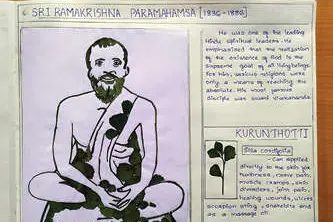 SRI RAMAKRISHNA PARAMAHAMSA [1836-1886]
He was one of the leading
Hindu spiritual leaders. He
emphasised that the realisation
of the existence of God is the
supreme goal of all living beings.
For him, various religions were
only a means of reaching the
absolute. His most famous
disciple was Swami Vivekananda.
KURUNTHOTTI
Sida cordifolia
- Can applied
directly to the skin for
numbness, nerve pain,
muscle cramps, skin
disorders, joint pain,
healing wounds, ulcers
scorpion sting, snakebite and
as a massage oil.